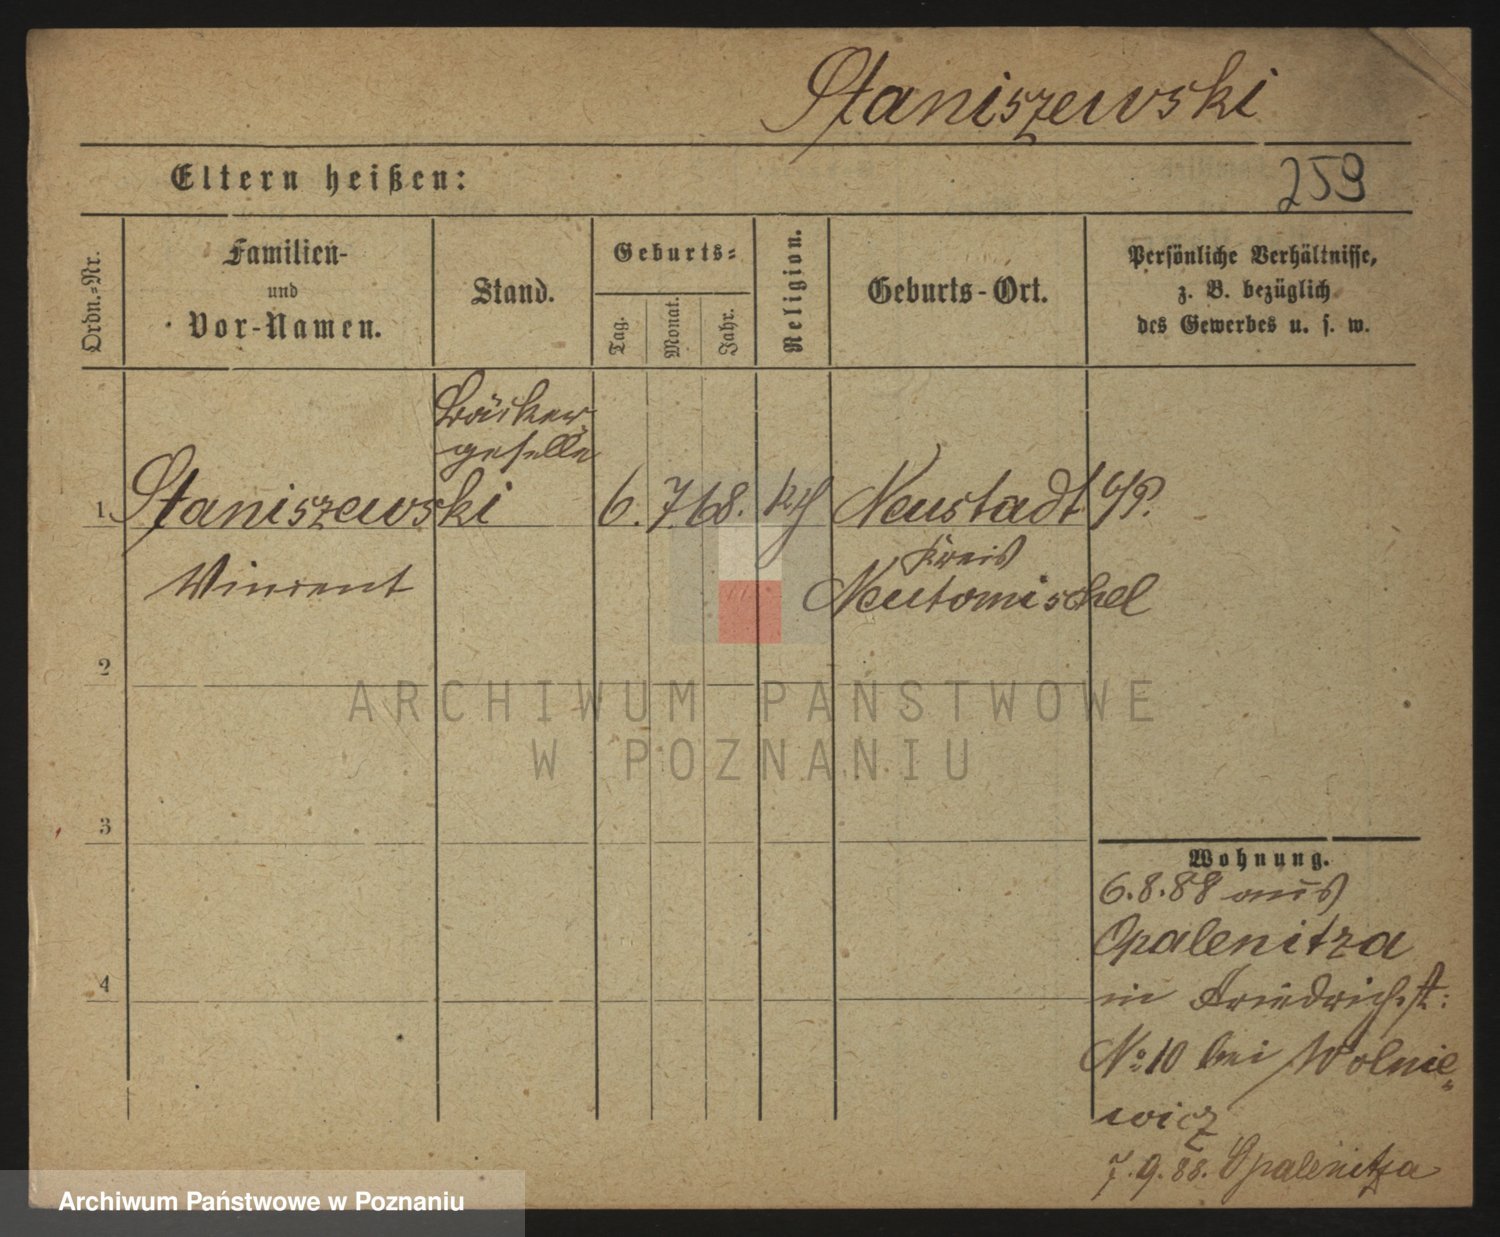 Staniszewski
Eltern heißen:
259
Ordn.-Nr.
Familien-
und
Vor-Namen.
Stand.
Geburts-
Tag.
Monat.
Jahr.
Religion.
Geburts-Ort.
Persönliche Verhältnisse,
z. B. bezüglich
des Gewerbes u. s. w.
Bäcker
geselle
1. Staniszewski 6. 7. 68. kth Neustadt b/P.
Vincent
Kreis
Neutomischel
2
3
4
Wohnung.
6.8.88 aus
Opalenitza
in Friedrichst:
No 10 bei Wolnie-
wicz
7.9.88. Opalenitza
ARCHIWUM PAŃSTWOWE
W POZNANIU
Archiwum Państwowe w Poznaniu